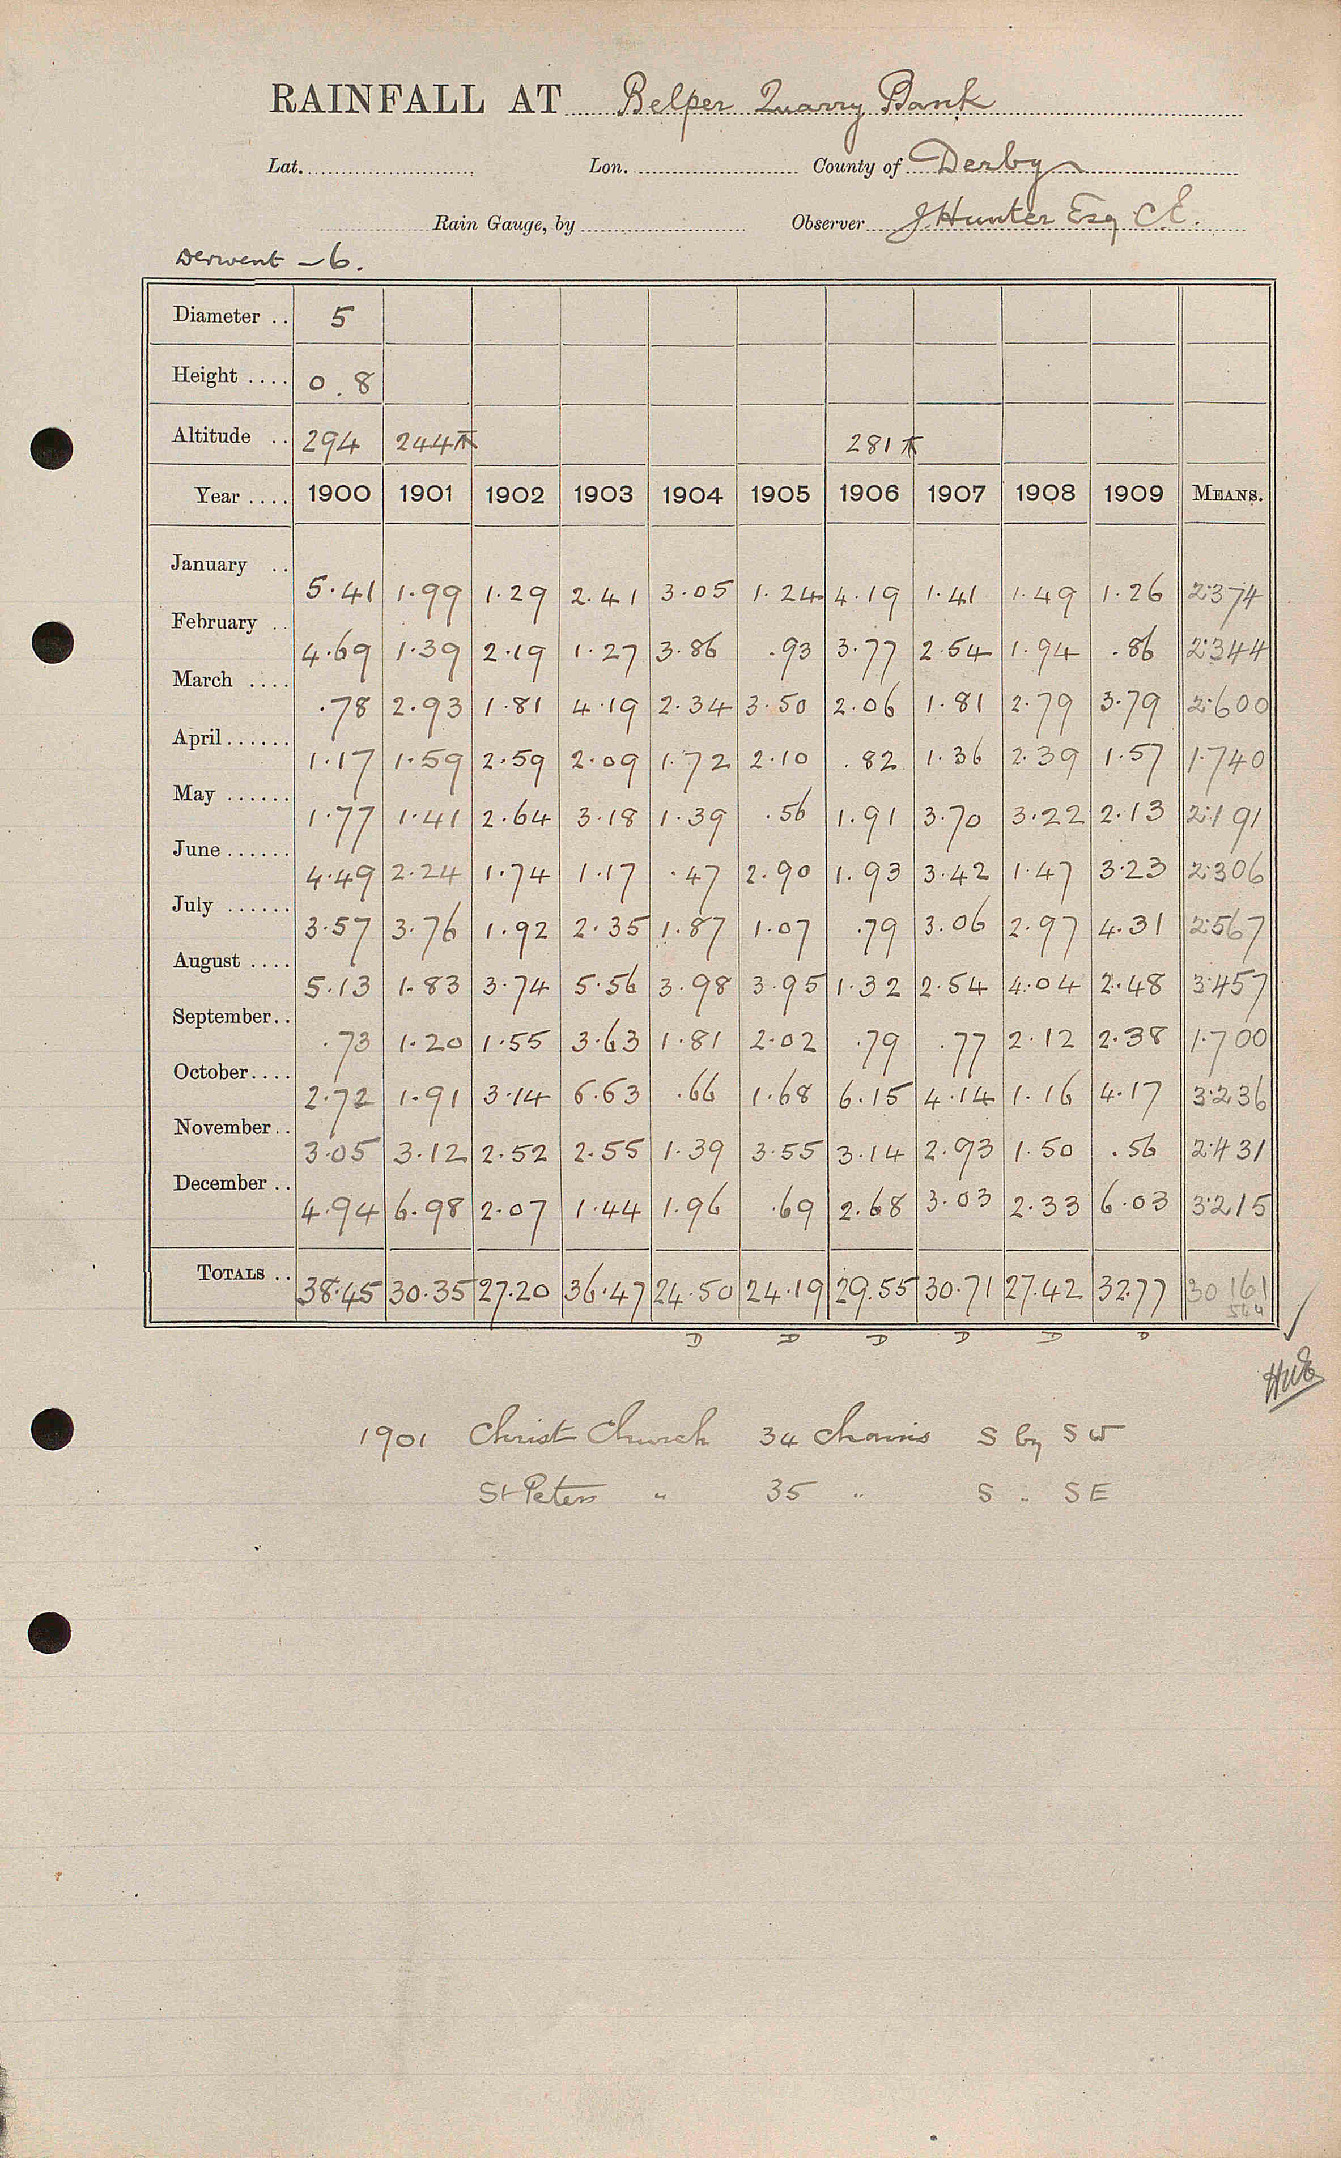 RAINFALL AT Belper Quarry Bank
Lat. Lon. County of Derby
Rain Gauge, by Observer J Hunter Esq C.E.
Derwent - 6.
Diameter .. 5
Height .... 0.8
Altitude .. 294 244 281
Year .... 1900 1901 1902 1903 1904 1905 1906 1907 1908 1909 MEANS.
January .. 5.41 1.99 1.29 2.41 3.05 1.24 4.19 1.41 1.49 1.26 2.374
February .. 4.69 1.39 2.19 1.27 3.86 .93 3.77 2.54 1.94 .86 2.344
March .... .78 2.93 1.81 4.19 2.34 3.50 2.06 1.81 2.79 3.79 2.600
April ...... 1.17 1.59 2.59 2.09 1.72 2.10 .82 1.36 2.39 1.57 1.740
May ...... 1.77 1.41 2.64 3.18 1.39 .56 1.91 3.70 3.22 2.13 2.191
June ...... 4.49 2.24 1.74 1.17 .47 2.90 1.93 3.42 1.47 3.23 2.306
July ...... 3.57 3.76 1.92 2.35 1.87 1.07 .79 3.06 2.97 4.31 2.567
August .... 5.13 1.83 3.74 5.56 3.98 3.95 1.32 2.54 4.04 2.48 3.457
September .. .73 1.20 1.55 3.63 1.81 2.02 .79 .77 2.12 2.38 1.700
October .... 2.72 1.91 3.14 6.63 .66 1.68 6.15 4.14 1.16 4.17 3.236
November .. 3.05 3.12 2.52 2.55 1.39 3.55 3.14 2.93 1.50 .56 2.431
December .. 4.94 6.98 2.07 1.44 1.96 .69 2.68 3.03 2.33 6.03 3.215
TOTALS .. 38.45 30.35 27.20 36.47 24.50 24.19 29.55 30.71 27.42 32.77 30.161
D D D D D D
1901 Christ Church 34 chains S by SW
St Peters " 35 " S " SE